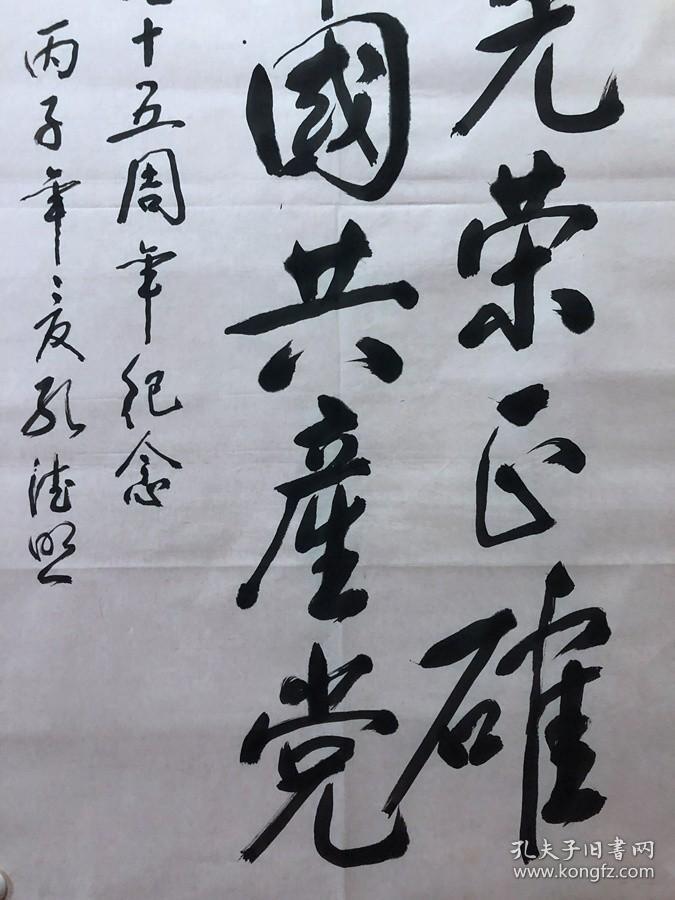 光荣正確
國共產党
十五周年纪念
丙子年夏孔德照
孔夫子旧書网
www.kongfz.com